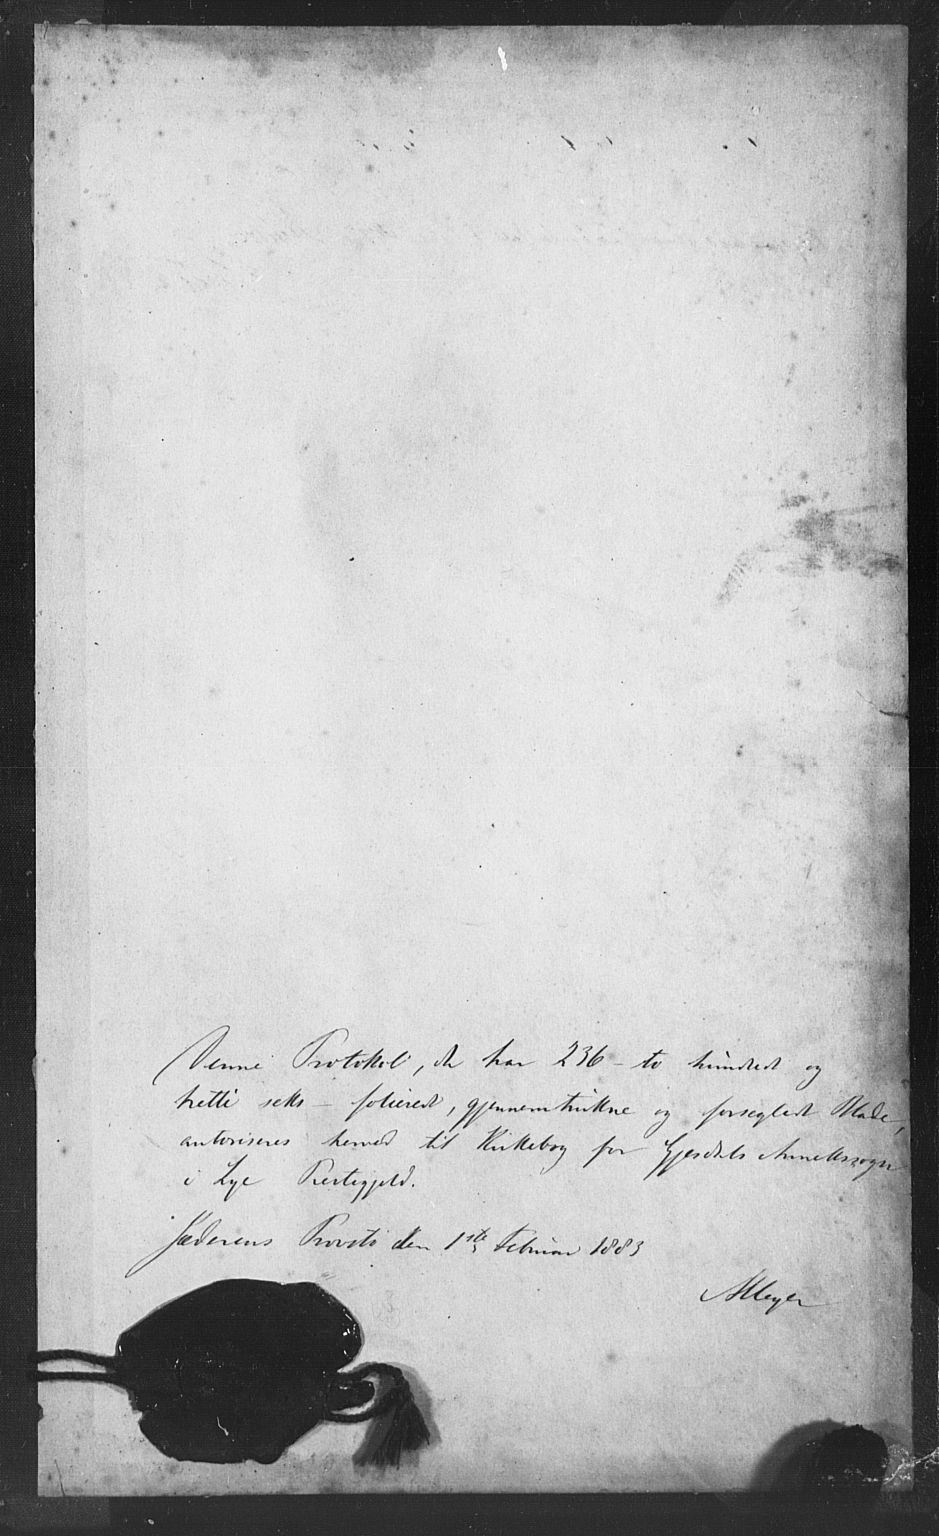 Denne Protokol, der har 236 – to hundrede og
tretti seks – folierede, gjennemtrukne og forseglede Blade,
autoriseres herved til Kirkebog for Gjesdals Annekssogn
i Lye Prestegjeld.
Jæderens Provsti den 1ste Februar 1883
Meyer